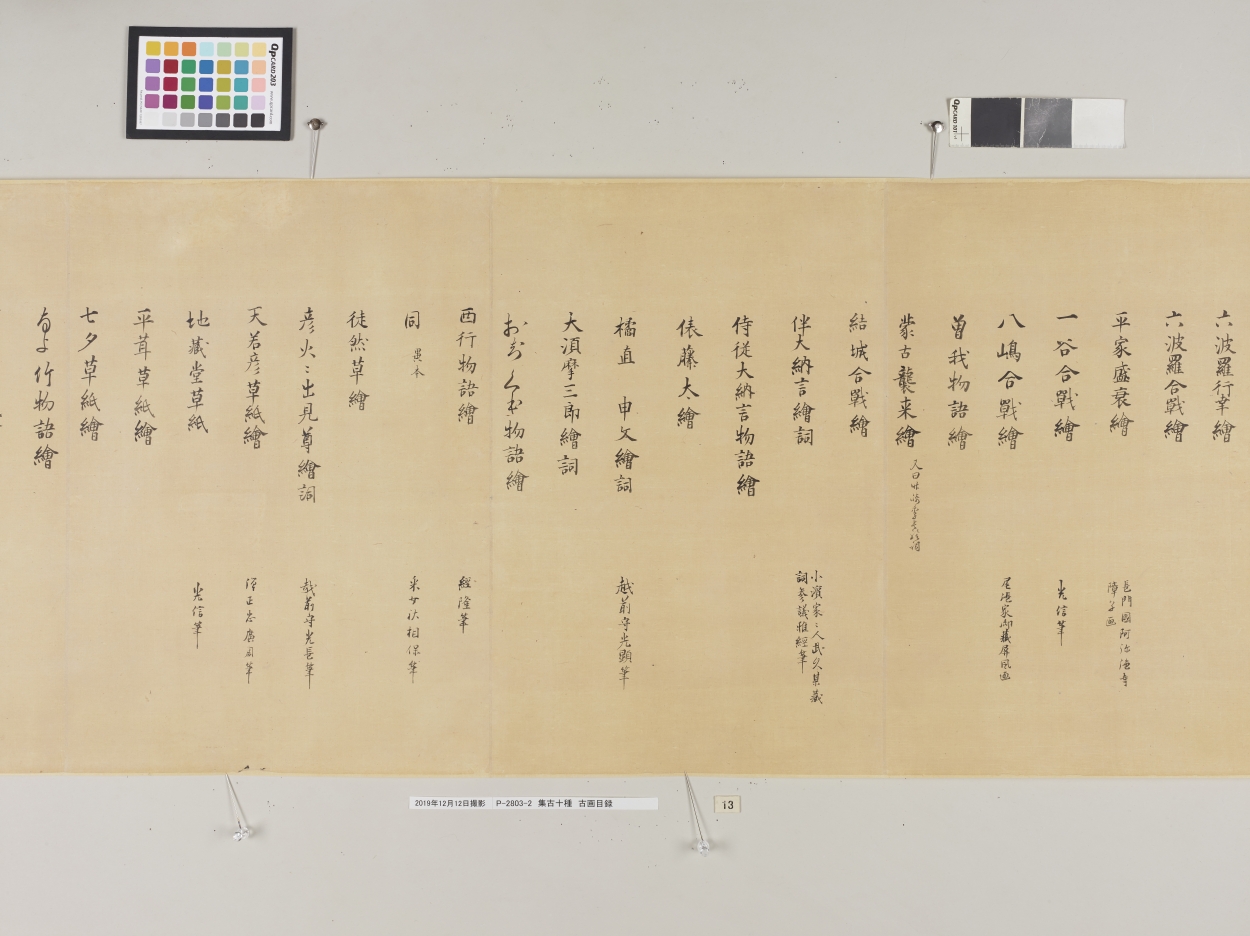 六波羅行幸繪
六波羅合戰繪
平家盛衰繪
長門國阿弥陀寺
障子画
一谷合戰繪
光信筆
八嶋合戰繪
尾張家御藏屏風画
曽我物語繪
蒙古襲来繪
結城合戰繪
伴大納言繪詞
小濱家々人武久某藏
詞参議雅經筆
侍従大納言物語繪
俵藤太繪
橘直 申文繪詞
越前守光顕筆
大須摩三郎繪詞
物語繪
西行物語繪
經隆筆
同 異本
采女祐相保筆
徒然草繪
彦火々出見尊繪詞
越前守光長筆
天若彦草紙繪
弾正忠廣周筆
地藏堂草紙
光信筆
平茸草紙繪
七夕草紙繪
なよ竹物語繪
QPCARD 203
www.qpcard.com
QPCARD 101
2019年12月12日撮影 P-2803-2 集古十種 古画目録
13